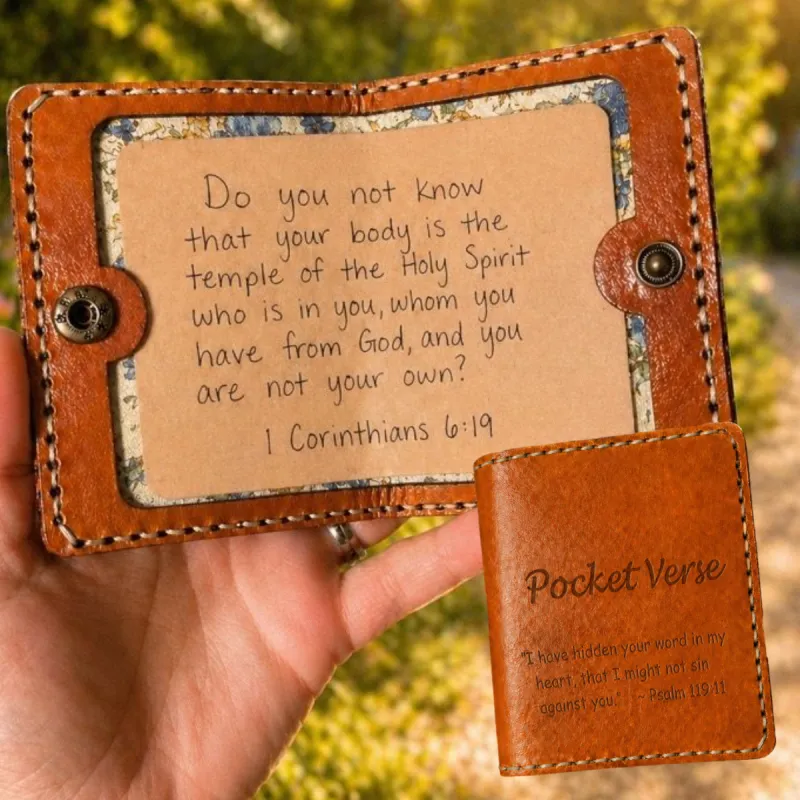 Do you not know
that your body is the
temple of the Holy Spirit
who is in you, whom you
have from God, and you
are not your own?
1 Corinthians 6:19
Pocket Verse
"I have hidden your word in my
heart, that I might not sin
against you." ~ Psalm 119:11